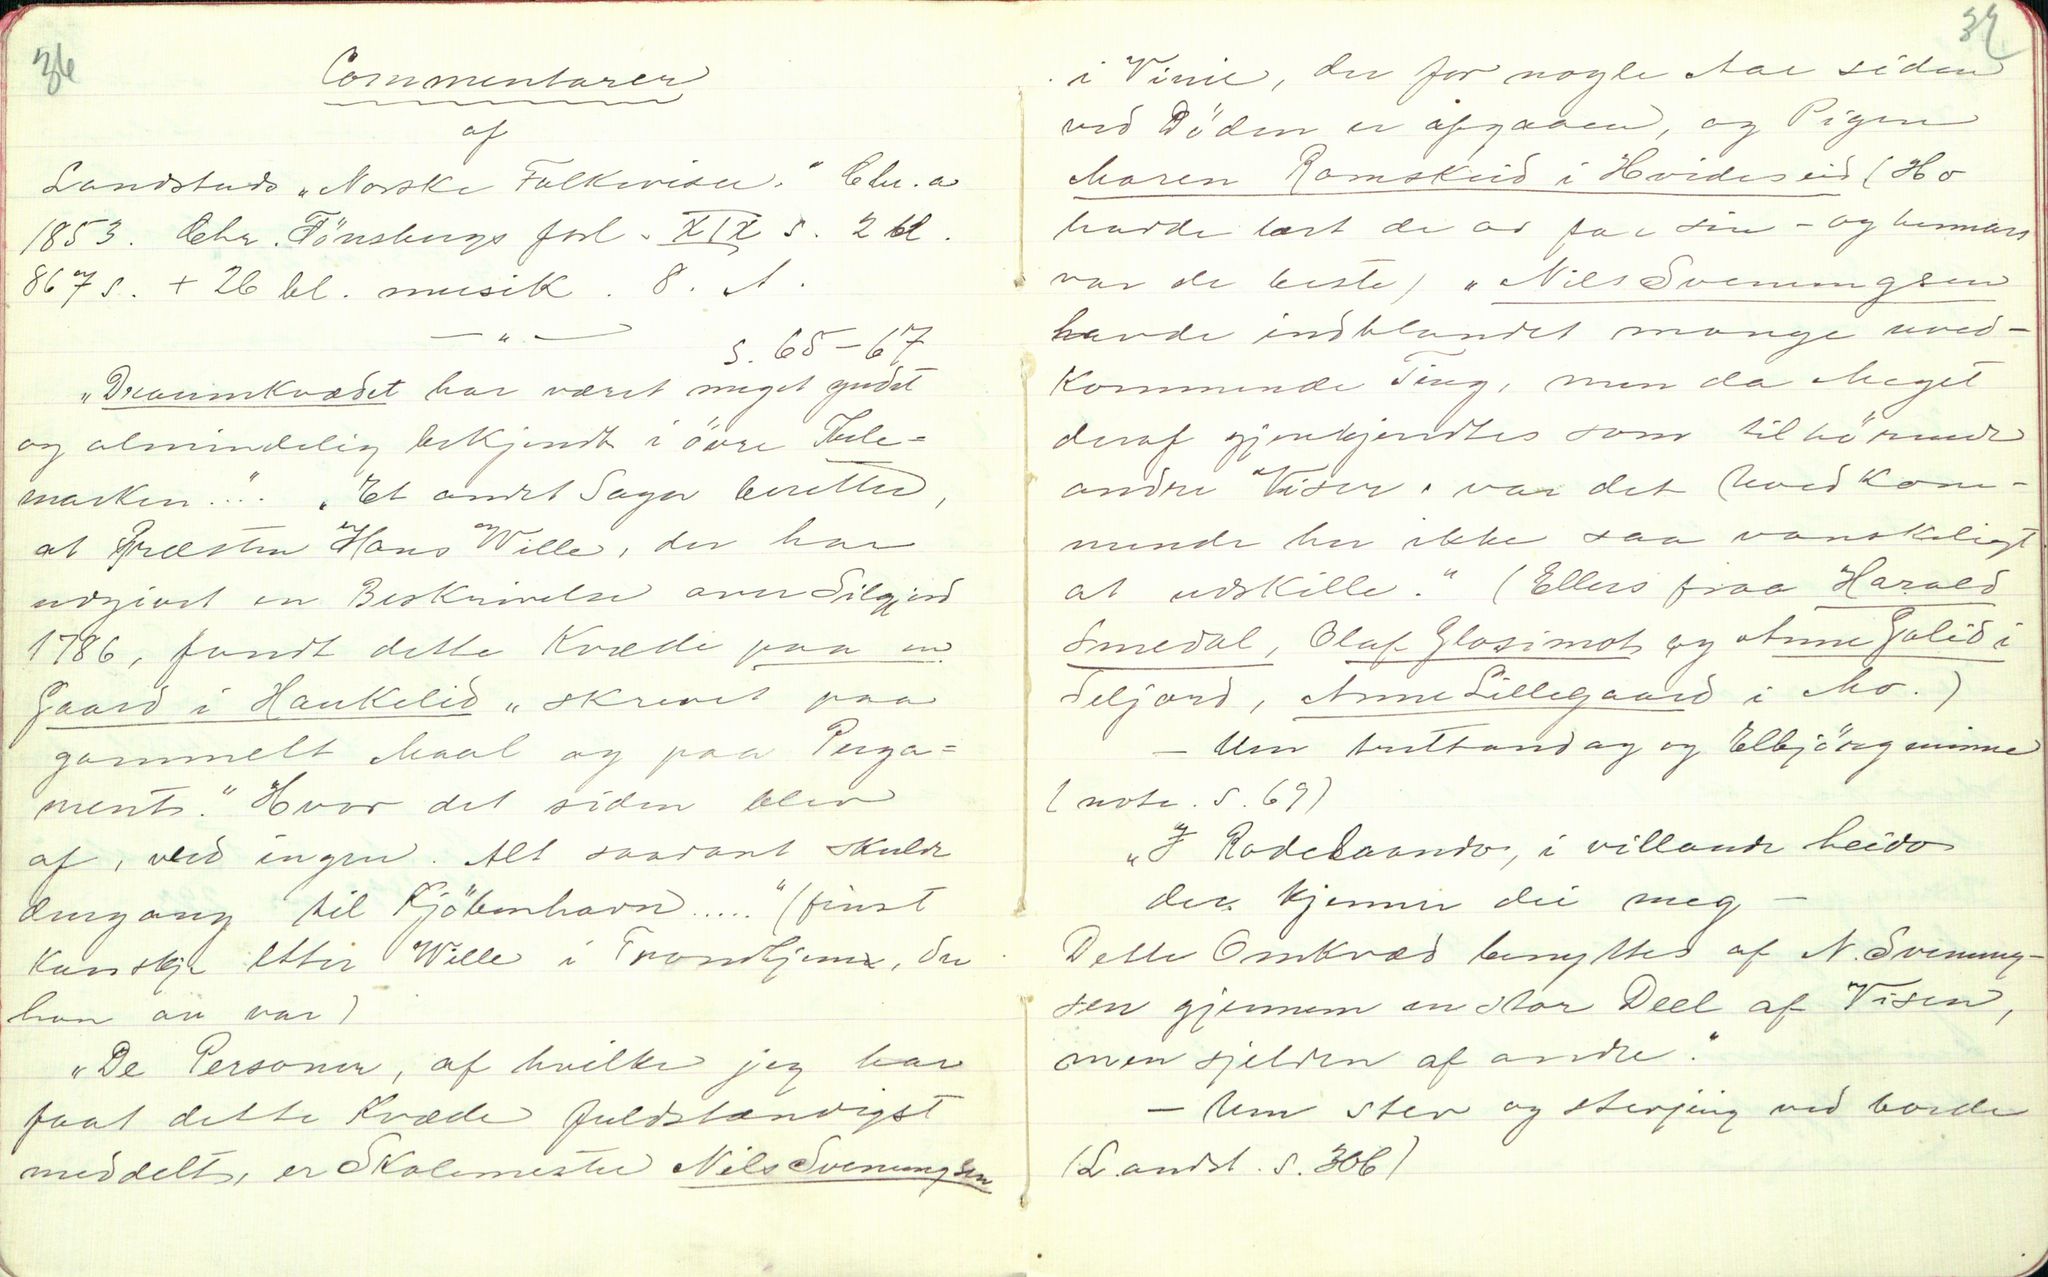 36
Commentarer
af
Landstads „Norske Folkeviser." Chr.a
1853. Chr. Tönsbergs forl. XIX s. 2 bl.
867 s. + 26 bl. musik. 8. A.
— „ —
s. 65-67
„Draumkvædet har været meget yndet
og almindelig bekjendt i övre Tele=
marken..". „Et andet Sagn beretter,
at Præsten Hans Wille, der har
udgivet en Beskrivelse over Silgjord
1786, fandt dette Kvæde paa en
Gaard i Haukelid „skrevet paa
gammelt Maal og paa Perga=
ment." Hvor det siden blev
af, veed ingen. Alt saadant skulde
dengang til Kjöbenhavn....." (finst
kanskje etter Wille i Trondhjem, der
han av var)
„De Personer, af hvilke jeg har
faat dette Kvæde fuldstændigst
meddelt, er Skolemester Nils Svenungsen
37
i Vinie, der for nogle Aar siden
ved Döden er afgaaen, og Pigen
Maren Ramskeid i Hvideseid (Ho
hadde lært de av far sin - og hennars
var de beste) „Nils Svenungsen
havde indblandet mange uved-
kommende Ting, men da Meget
deraf gjenkjendtes som tilhörende
andre Viser, var det Uvedkom-
mende her ikke saa vanskeligt
at udskille." (Ellers fraa Harald
Smedal, Olaf Glosimot og Anne Golid i
Seljord, Anne Lillegaard i Mo.)
— Um trettandag og Elbjörg minne
(note. s. 69)
„I Rodelaando, i villande heido
der kjenner dei meg —
Dette Omkvæd benyttes af N. Svenung-
sen gjennem en stor Deel af Visen,
men sjelden af andre."
— Um stev og stevjing ved borde
(Landst. s. 366)